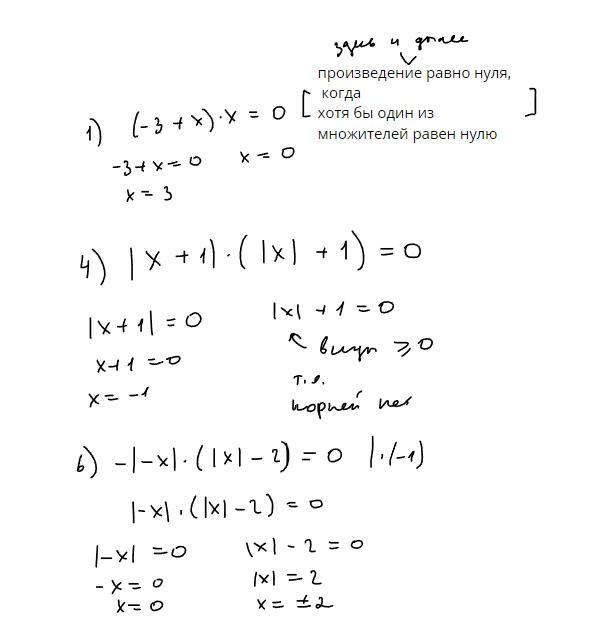 здесь и далее
произведение равно нуля,
когда
хотя бы один из
множителей равен нулю
1) (-3 + x)·x = 0
-3+x=0 x=0
x = 3
4) |x + 1|·(|x| + 1) = 0
|x+1| = 0 |x| + 1 = 0
x+1=0 ↖ всегда ≥ 0
x = -1 т.е.
корней нет
6) -|-x|·(|x| - 2) = 0 |·(-1)
|-x|·(|x| - 2) = 0
|-x| = 0 |x| - 2 = 0
-x = 0 |x| = 2
x = 0 x = ±2